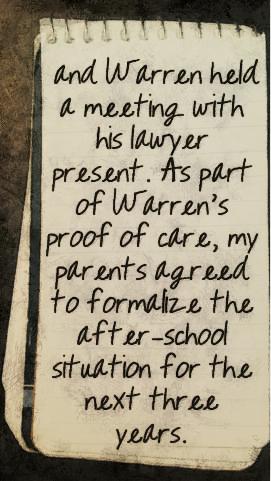 and Warren held
a meeting with
his lawyer
present. As part
of Warren's
proof of care, my
parents agreed
to formalize the
after-school
situation for the
next three
years.